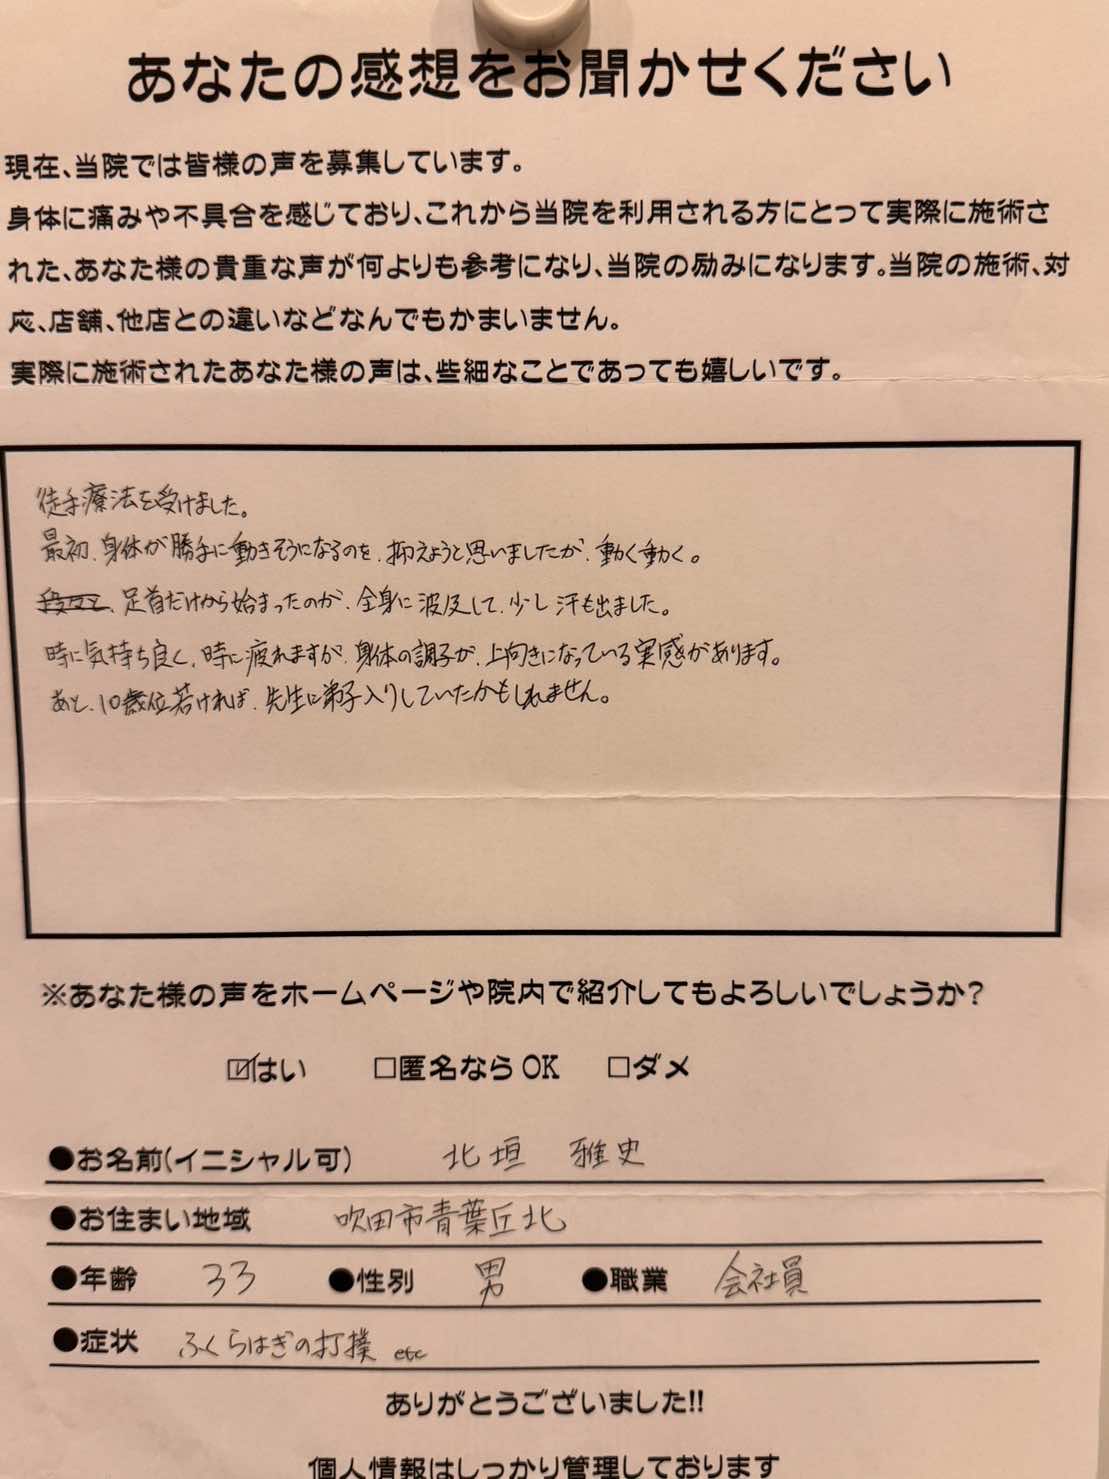 あなたの感想をお聞かせください
現在、当院では皆様の声を募集しています。
身体に痛みや不具合を感じており、これから当院を利用される方にとって実際に施術さ
れた、あなた様の貴重な声が何よりも参考になり、当院の励みになります。当院の施術、対
応、店舗、他店との違いなどなんでもかまいません。
実際に施術されたあなた様の声は、些細なことであっても嬉しいです。
徒手療法を受けました。
最初、身体が勝手に動きそうになるのを、抑えようと思いましたが、動く動く。
段々と、足首だけから始まったのが、全身に波及して、少し汗も出ました。
時に気持ち良く、時に疲れますが、身体の調子が、上向きになっている実感があります。
あと、10歳位若ければ、先生に弟子入りしていたかもしれません。
※あなた様の声をホームページや院内で紹介してもよろしいでしょうか?
☑はい □匿名ならOK □ダメ
●お名前(イニシャル可) 北垣 雅史
●お住まい地域 吹田市青葉丘北
●年齢 33 ●性別 男 ●職業 会社員
●症状 ふくらはぎの打撲 etc
ありがとうございました!!
個人情報はしっかり管理しております